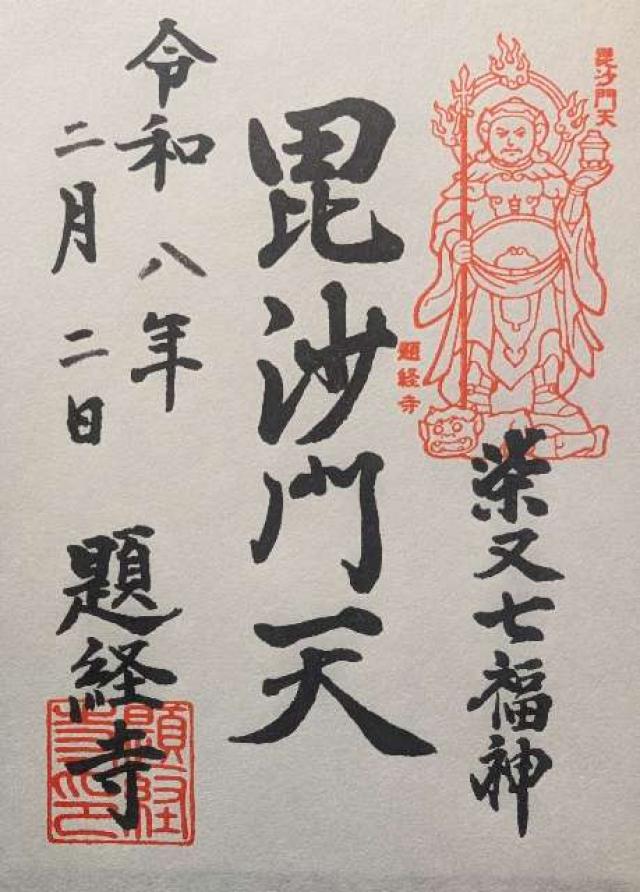 毘沙門天
題経寺
柴又七福神
毘沙門天
令和八年
二月二日
題経寺
題経寺印